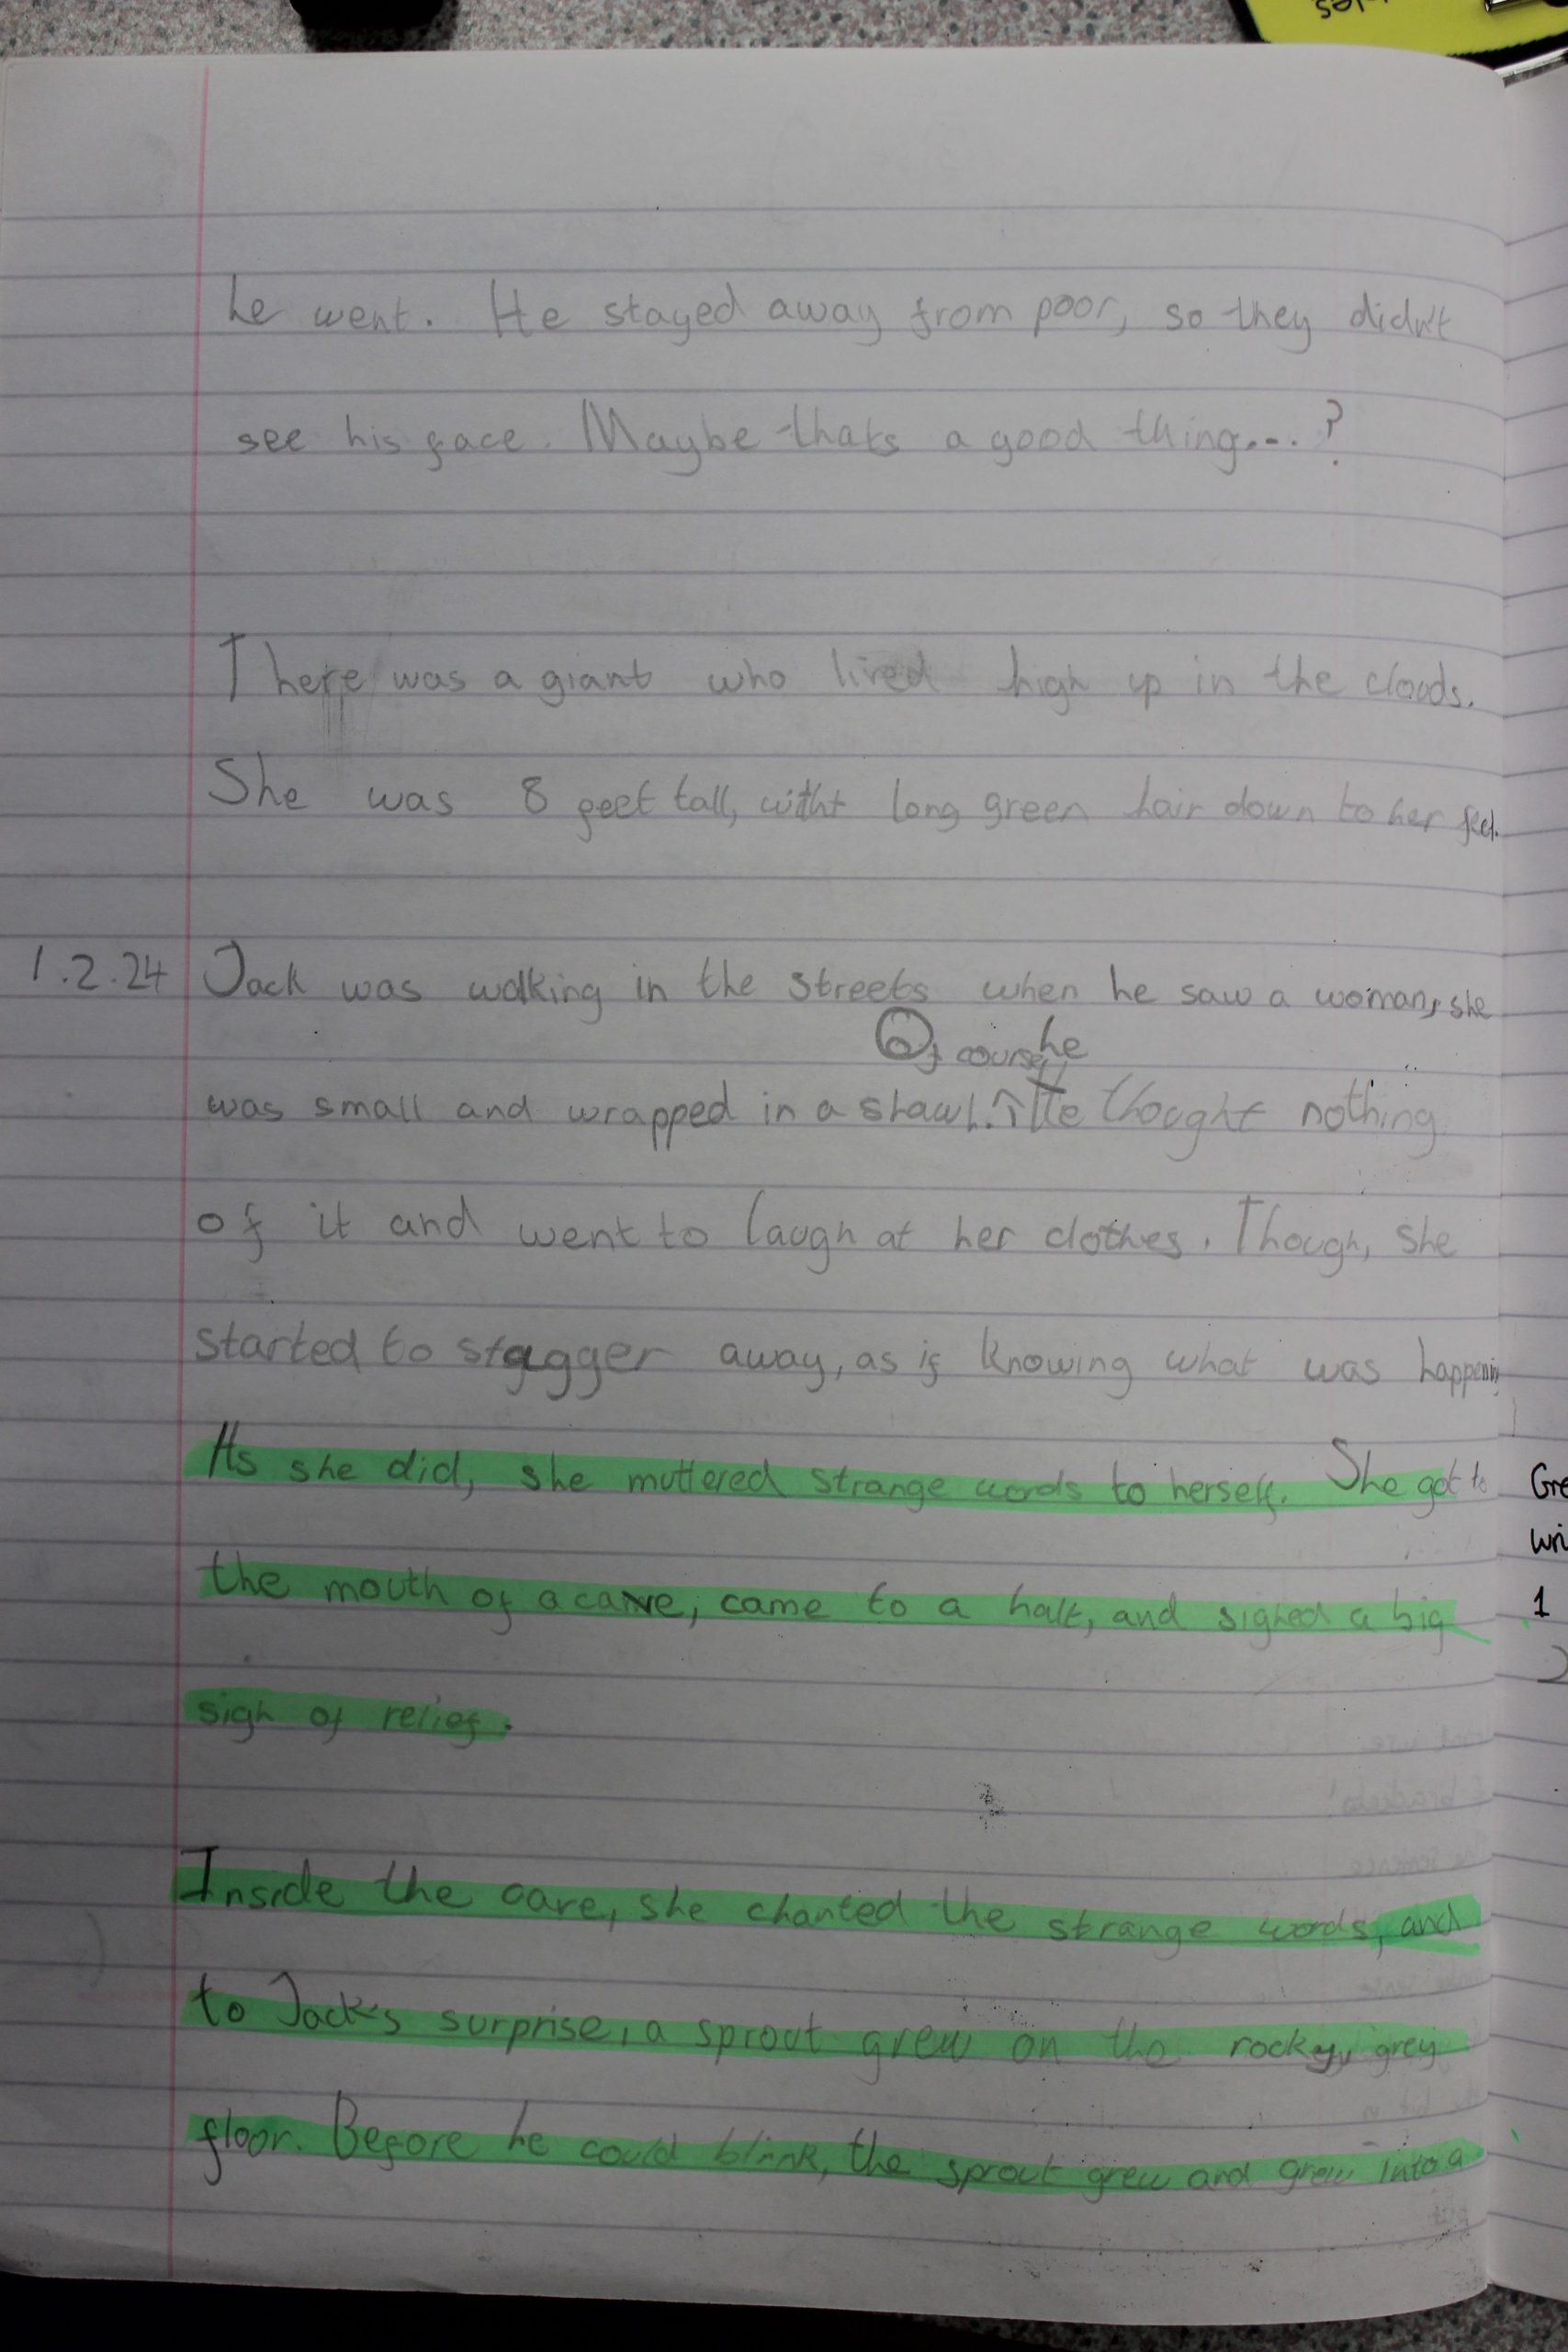 he went. He stayed away from poor, so they didn't
see his face. Maybe thats a good thing...?
There was a giant who lived high up in the clouds.
She was 8 feet tall, with long green hair down to her feet.
1.2.24 Jack was walking in the streets when he saw a woman, she
Of course, he
was small and wrapped in a shawl. He thought nothing
of it and went to laugh at her clothes. Though, she
started to stagger away, as if knowing what was happening
As she did, she muttered strange words to herself. She got to
the mouth of a cave, came to a halt, and sighed a big
sigh of relief.
Inside the cave, she chanted the strange words, and
to Jack's surprise, a sprout grew on the rocky, grey
floor. Before he could blink, the sprout grew and grew into a
1
2